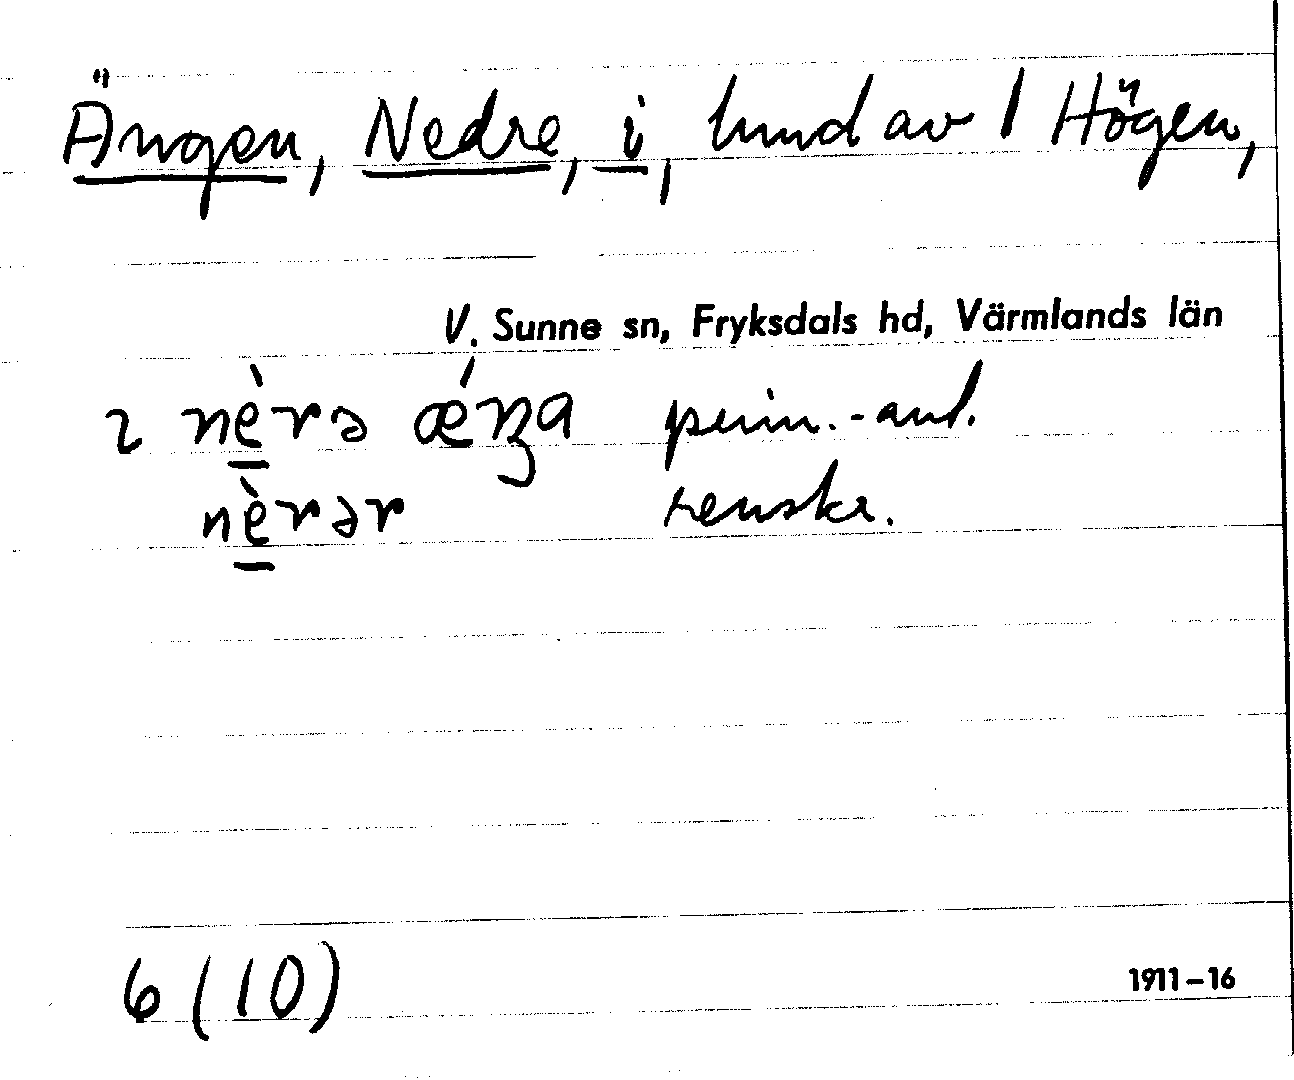 Ängen, Nedre, i, lund av 1 Högen,
V. Sunne sn, Fryksdals hd, Värmlands län
ɩ nèrə ǽŋa penn.-ant.
nèrər renskr.
6 (10)
1911-16